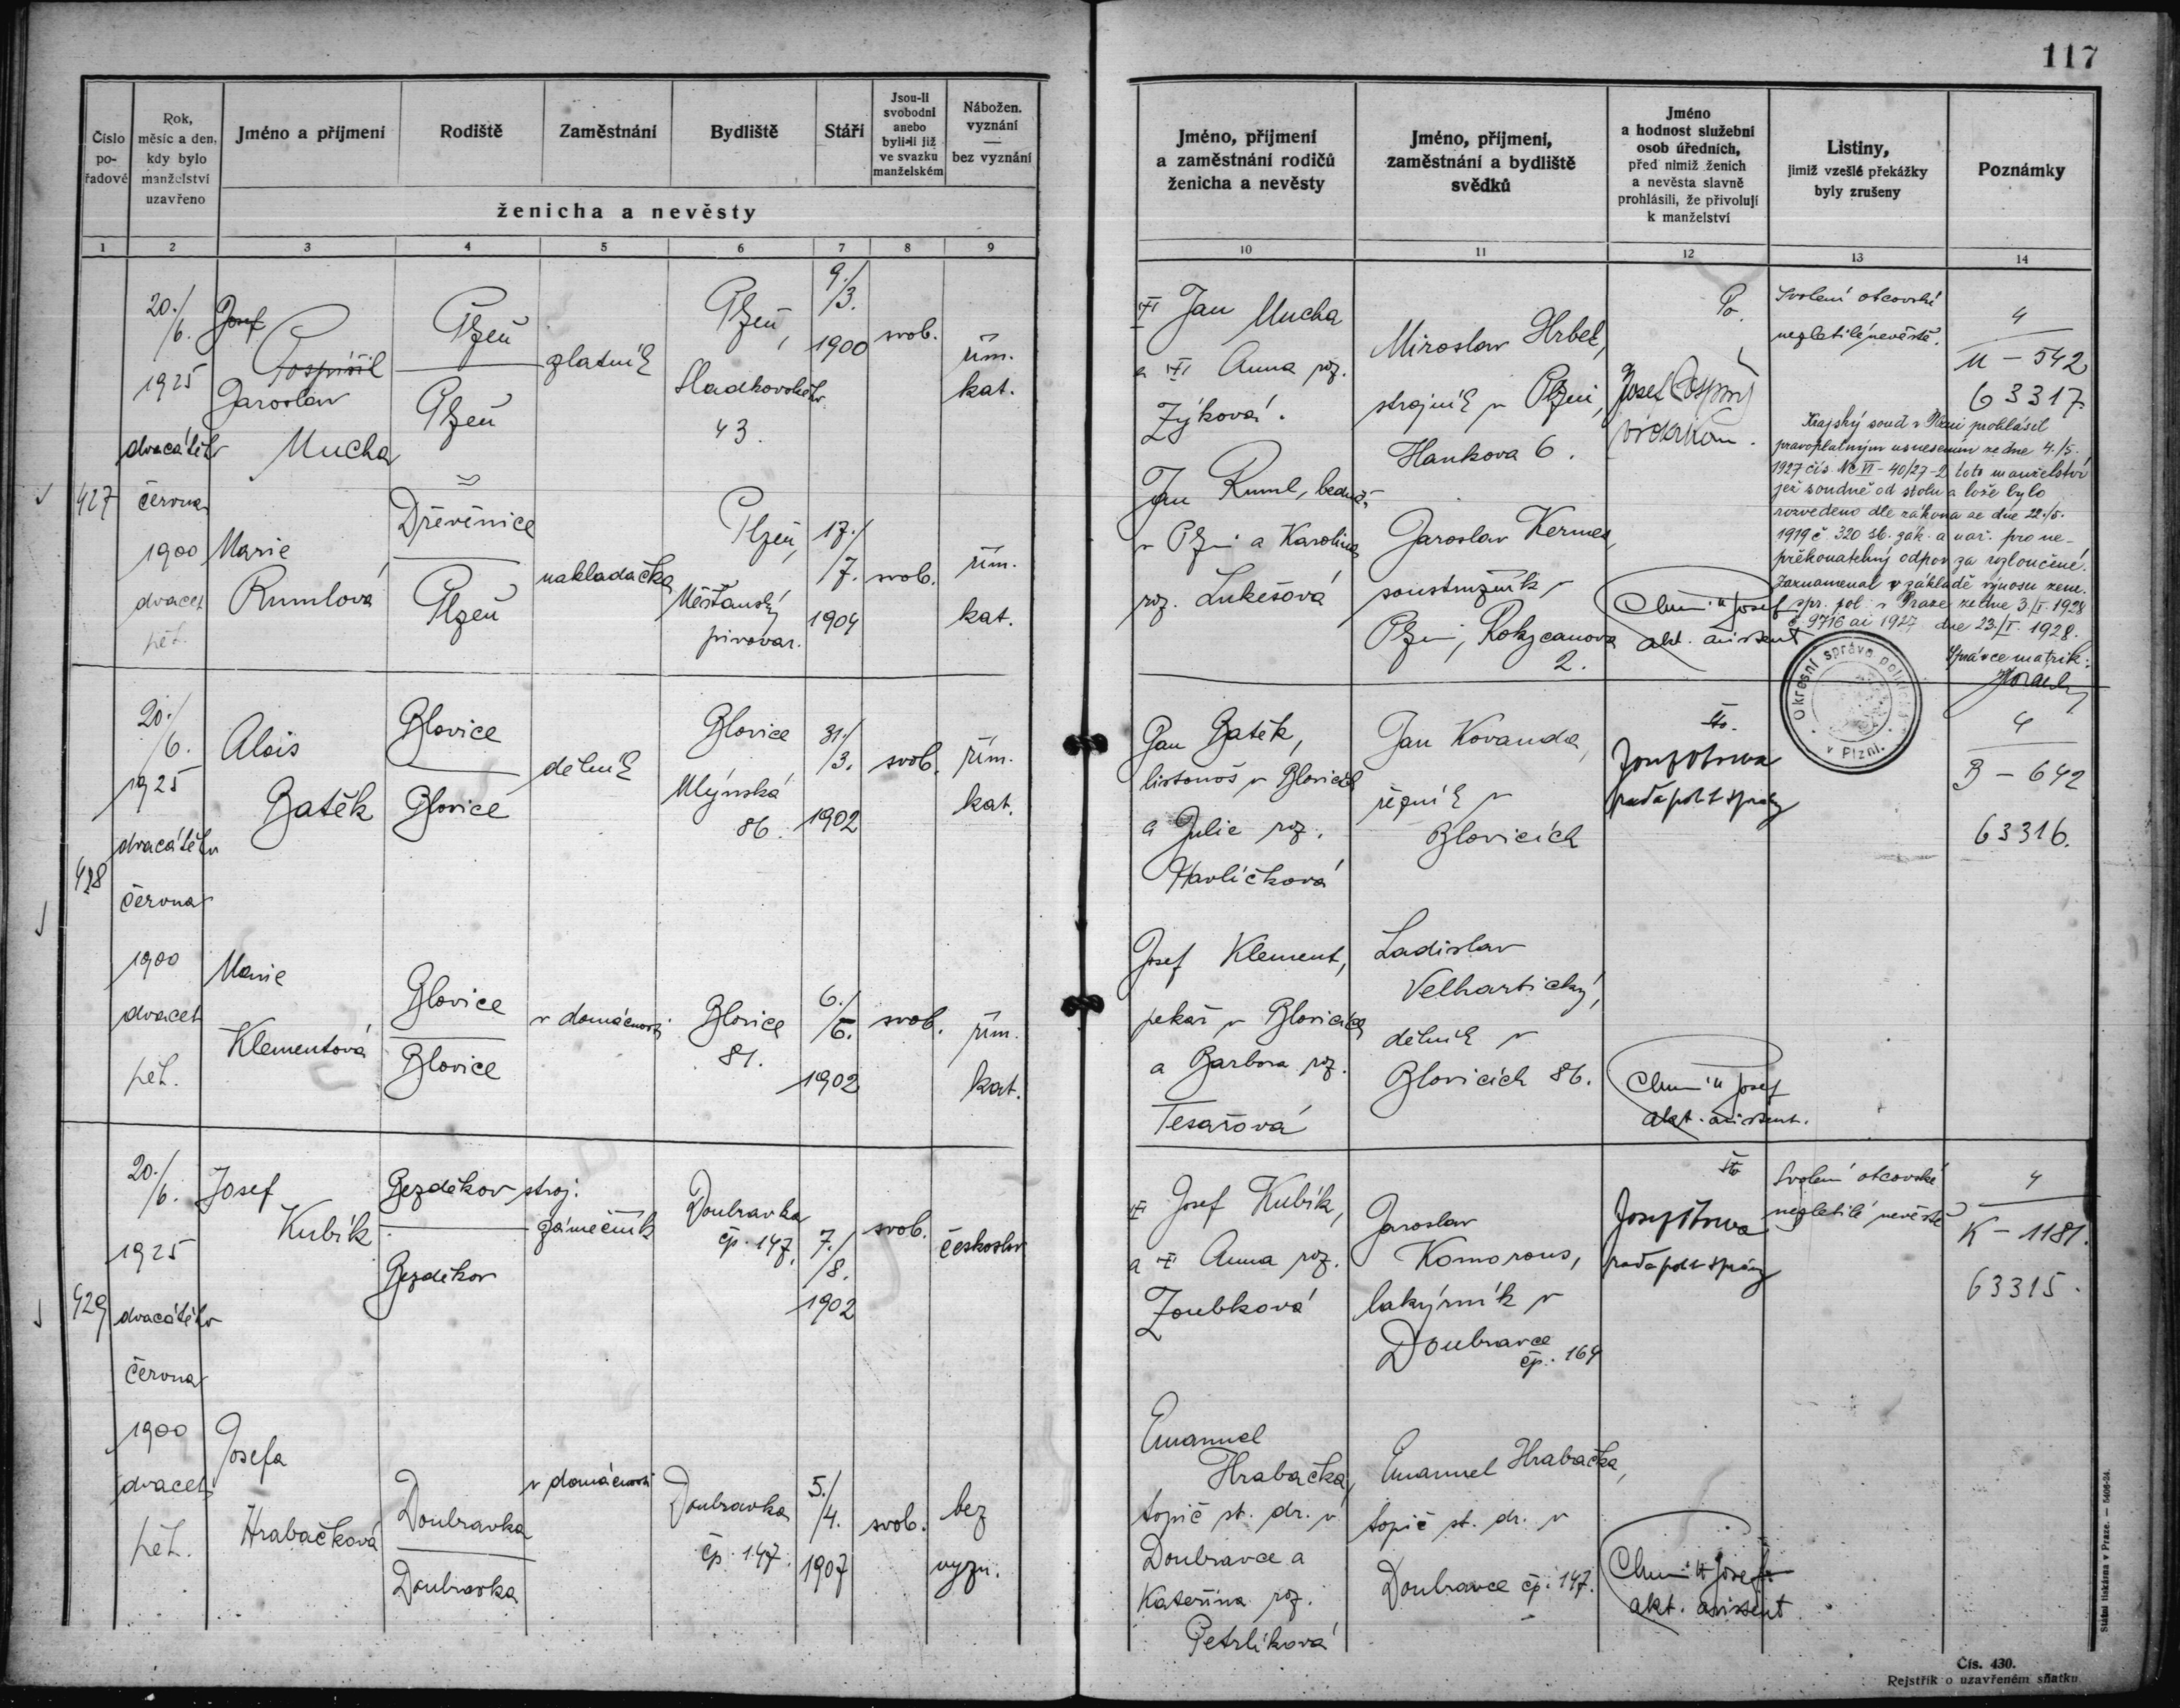 117
Číslo po-řadové
Rok, měsíc a den, kdy bylo manželství uzavřeno
Jméno a příjmení
Rodiště
Zaměstnání
Bydliště
Stáří
Jsou-li svobodni anebo byli-li již ve svazku manželském
Nábožen. vyznání — bez vyznání
ženicha a nevěsty
Jméno, příjmení a zaměstnání rodičů ženicha a nevěsty
Jméno, příjmení, zaměstnání a bydliště svědků
Jméno a hodnost služební osob úředních, před nimiž ženich a nevěsta slavně prohlásili, že přivolují k manželství
Listiny, jimiž vzešlé překážky byly zrušeny
Poznámky
1 2 3 4 5 6 7 8 9 10 11 12 13 14
427
20./6.
1925
dvacátého
června
1900
dvacet
pět.
Josef
Pospíšil
Jaroslav
Mucha
Plzeň
Plzeň
zlatník
Plzeň,
Sladkovského
43.
9./3.
1900
svob.
řím.
kat.
Marie
Rumlová
Dřevěnice
Plzeň
nakladačka
Plzeň,
Měšťanský
pivovar.
17./7.
1904
svob.
řím.
kat.
Jan Mucha
a Anna roz.
Zýková.
Jan Ruml, bednář
v Plzni a Karolina
roz. Lukešová
Miroslav Hrbek,
strojník v Plzni,
Hankova 6.
Jaroslav Kermes,
soustružník v
Plzni, Rokycanova
2.
Po.
Josef Pospíšil
Josef
akt. assistent
Svolení otcovské
nezletilé nevěstě.
4
M - 542
63317.
Krajský soud v Plzni prohlásil
pravoplatným usnesením ze dne 4./5.
1927 čís. Nc VI - 40/27-2 toto manželství
jež soudně od stolu a lože bylo
rozvedeno dle zákona ze dne 22./5.
1919 č. 320 sb. zák. a nař. pro ne-
překonatelný odpor za rozloučené.
Zaznamenal v základě výnosu zem.
spr. pol. v Praze ze dne 3./I. 1928
č. 9716 ai 1927 dne 23./I. 1928.
Správce matrik:
Okresní správa politická v Plzni.
428
20./6.
1925
dvacátého
června
1900
dvacet
pět.
Alois
Batěk
Blovice
Blovice
dělník
Blovice
Mlýnská
86.
31./3.
1902
svob.
řím.
kat.
Marie
Klementová
Blovice
Blovice
v domácnosti
Blovice
81.
6./6.
1902
svob.
řím.
kat.
Jan Batěk,
listonoš v Blovicích
a Julie roz.
Havlíčková
Josef Klement,
pekař v Blovicích
a Barbora roz.
Tesařová
Jan Kovanda,
řezník v
Blovicích
Ladislav
Velhartický,
dělník v
Blovicích 86.
Što.
rada polit. správy
Josef
akt. assistent.
4
B - 642
63316.
429
20./6.
1925
dvacátého
června
1900
dvacet
pět.
Josef
Kubík
Bezděkov
Bezděkov
stroj.
zámečník
Doubravka
čp. 147.
7./8.
1902
svob.
českoslov.
Josefa
Hrabačková
Doubravka
Doubravka
v domácnosti
Doubravka
čp. 147.
5./4.
1907
svob.
bez
vyzn.
Josef Kubík,
a Anna roz.
Zoubková
Emanuel
Hrabačka,
topič st. dr. v
Doubravce a
Kateřina roz.
Petrlíková
Jaroslav
Komorous,
lakýrník v
Doubravce
čp. 169
Emanuel Hrabačka,
topič st. dr. v
Doubravce čp. 147.
Što
rada polit. správy
Josef
akt. assistent.
Svolení otcovské
nezletilé nevěstě
4
K - 1181.
63315.
Státní tiskárna v Praze. — 5406-24.
Čís. 430.
Rejstřík o uzavřeném sňatku.